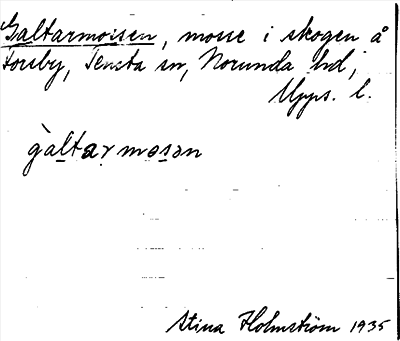 Galtarmossen, mosse i skogen å
Forsby, Tensta sn, Norunda hd,
Upps. l.
gàltarmosən
Stina Holmström 1935